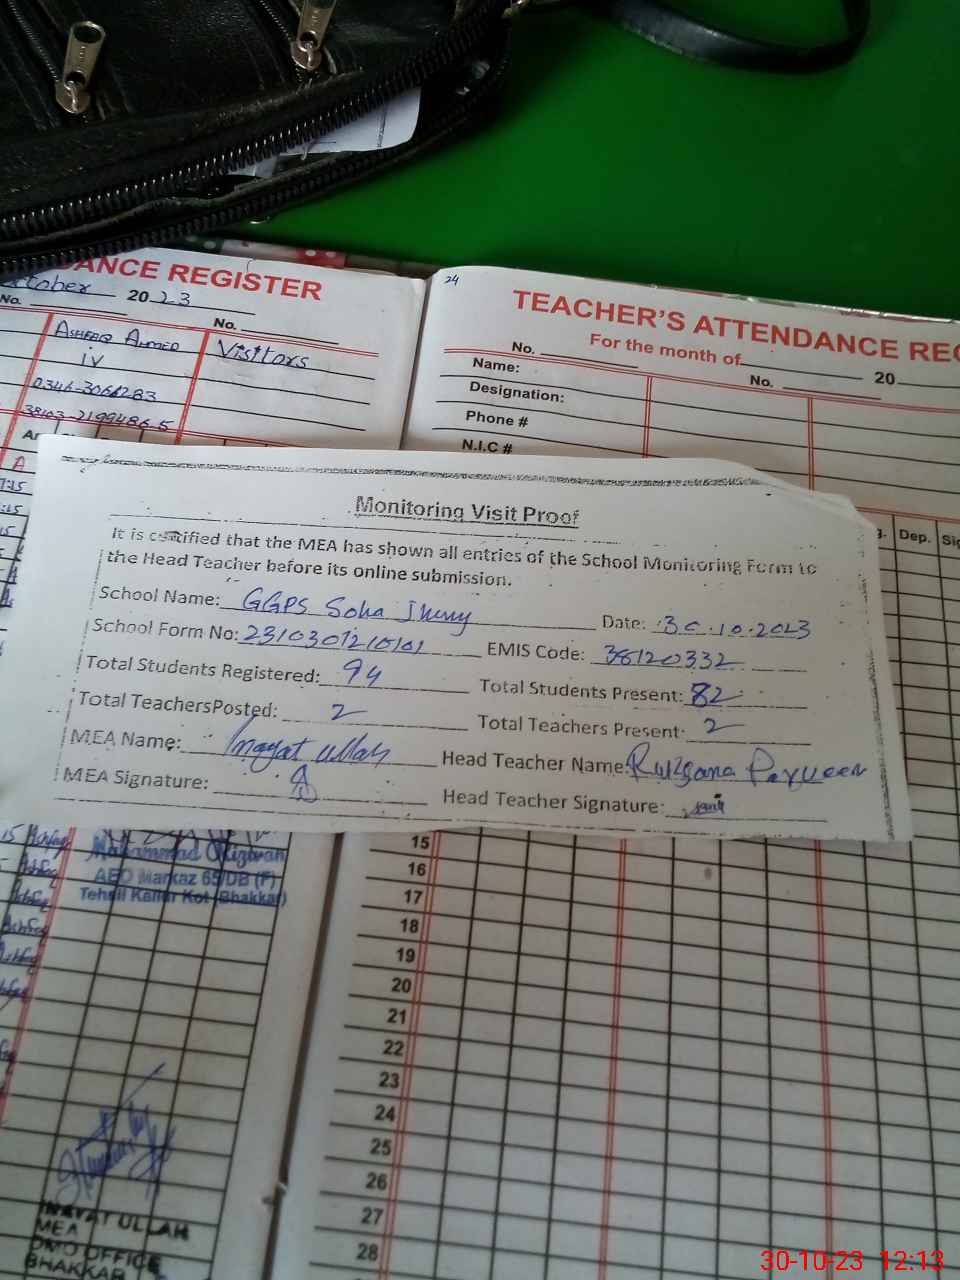 DANCE REGISTER
October 2023
No.
No.
Ashfaq Ahmed
Visitors
IV
0346-3066283
38103-2199486-5
A
24
TEACHER'S ATTENDANCE REG
For the month of
No.
No. 20
Name:
Designation:
Phone #
N.I.C #
Dep. Sig
Monitoring Visit Proof
It is certified that the MEA has shown all entries of the School Monitoring Form to
the Head Teacher before its online submission.
School Name: GGPS Soha Date: 30.10.2023
School Form No: 2310301210101 EMIS Code: 38120332
Total Students Registered: 94 Total Students Present: 82
Total TeachersPosted: 2 Total Teachers Present: 2
MEA Name: Inayat ullah Head Teacher Name: Parveen
MEA Signature: Head Teacher Signature:
Muhammad Rizwan
AEO Markaz 65/DB (F)
Tehsil Kallur Kot (Bhakkar)
15
16
17
18
19
20
21
22
23
24
25
26
27
28
INAYAT ULLAH
MEA
DMO OFFICE
BHAKKAR
30-10-23 12:13